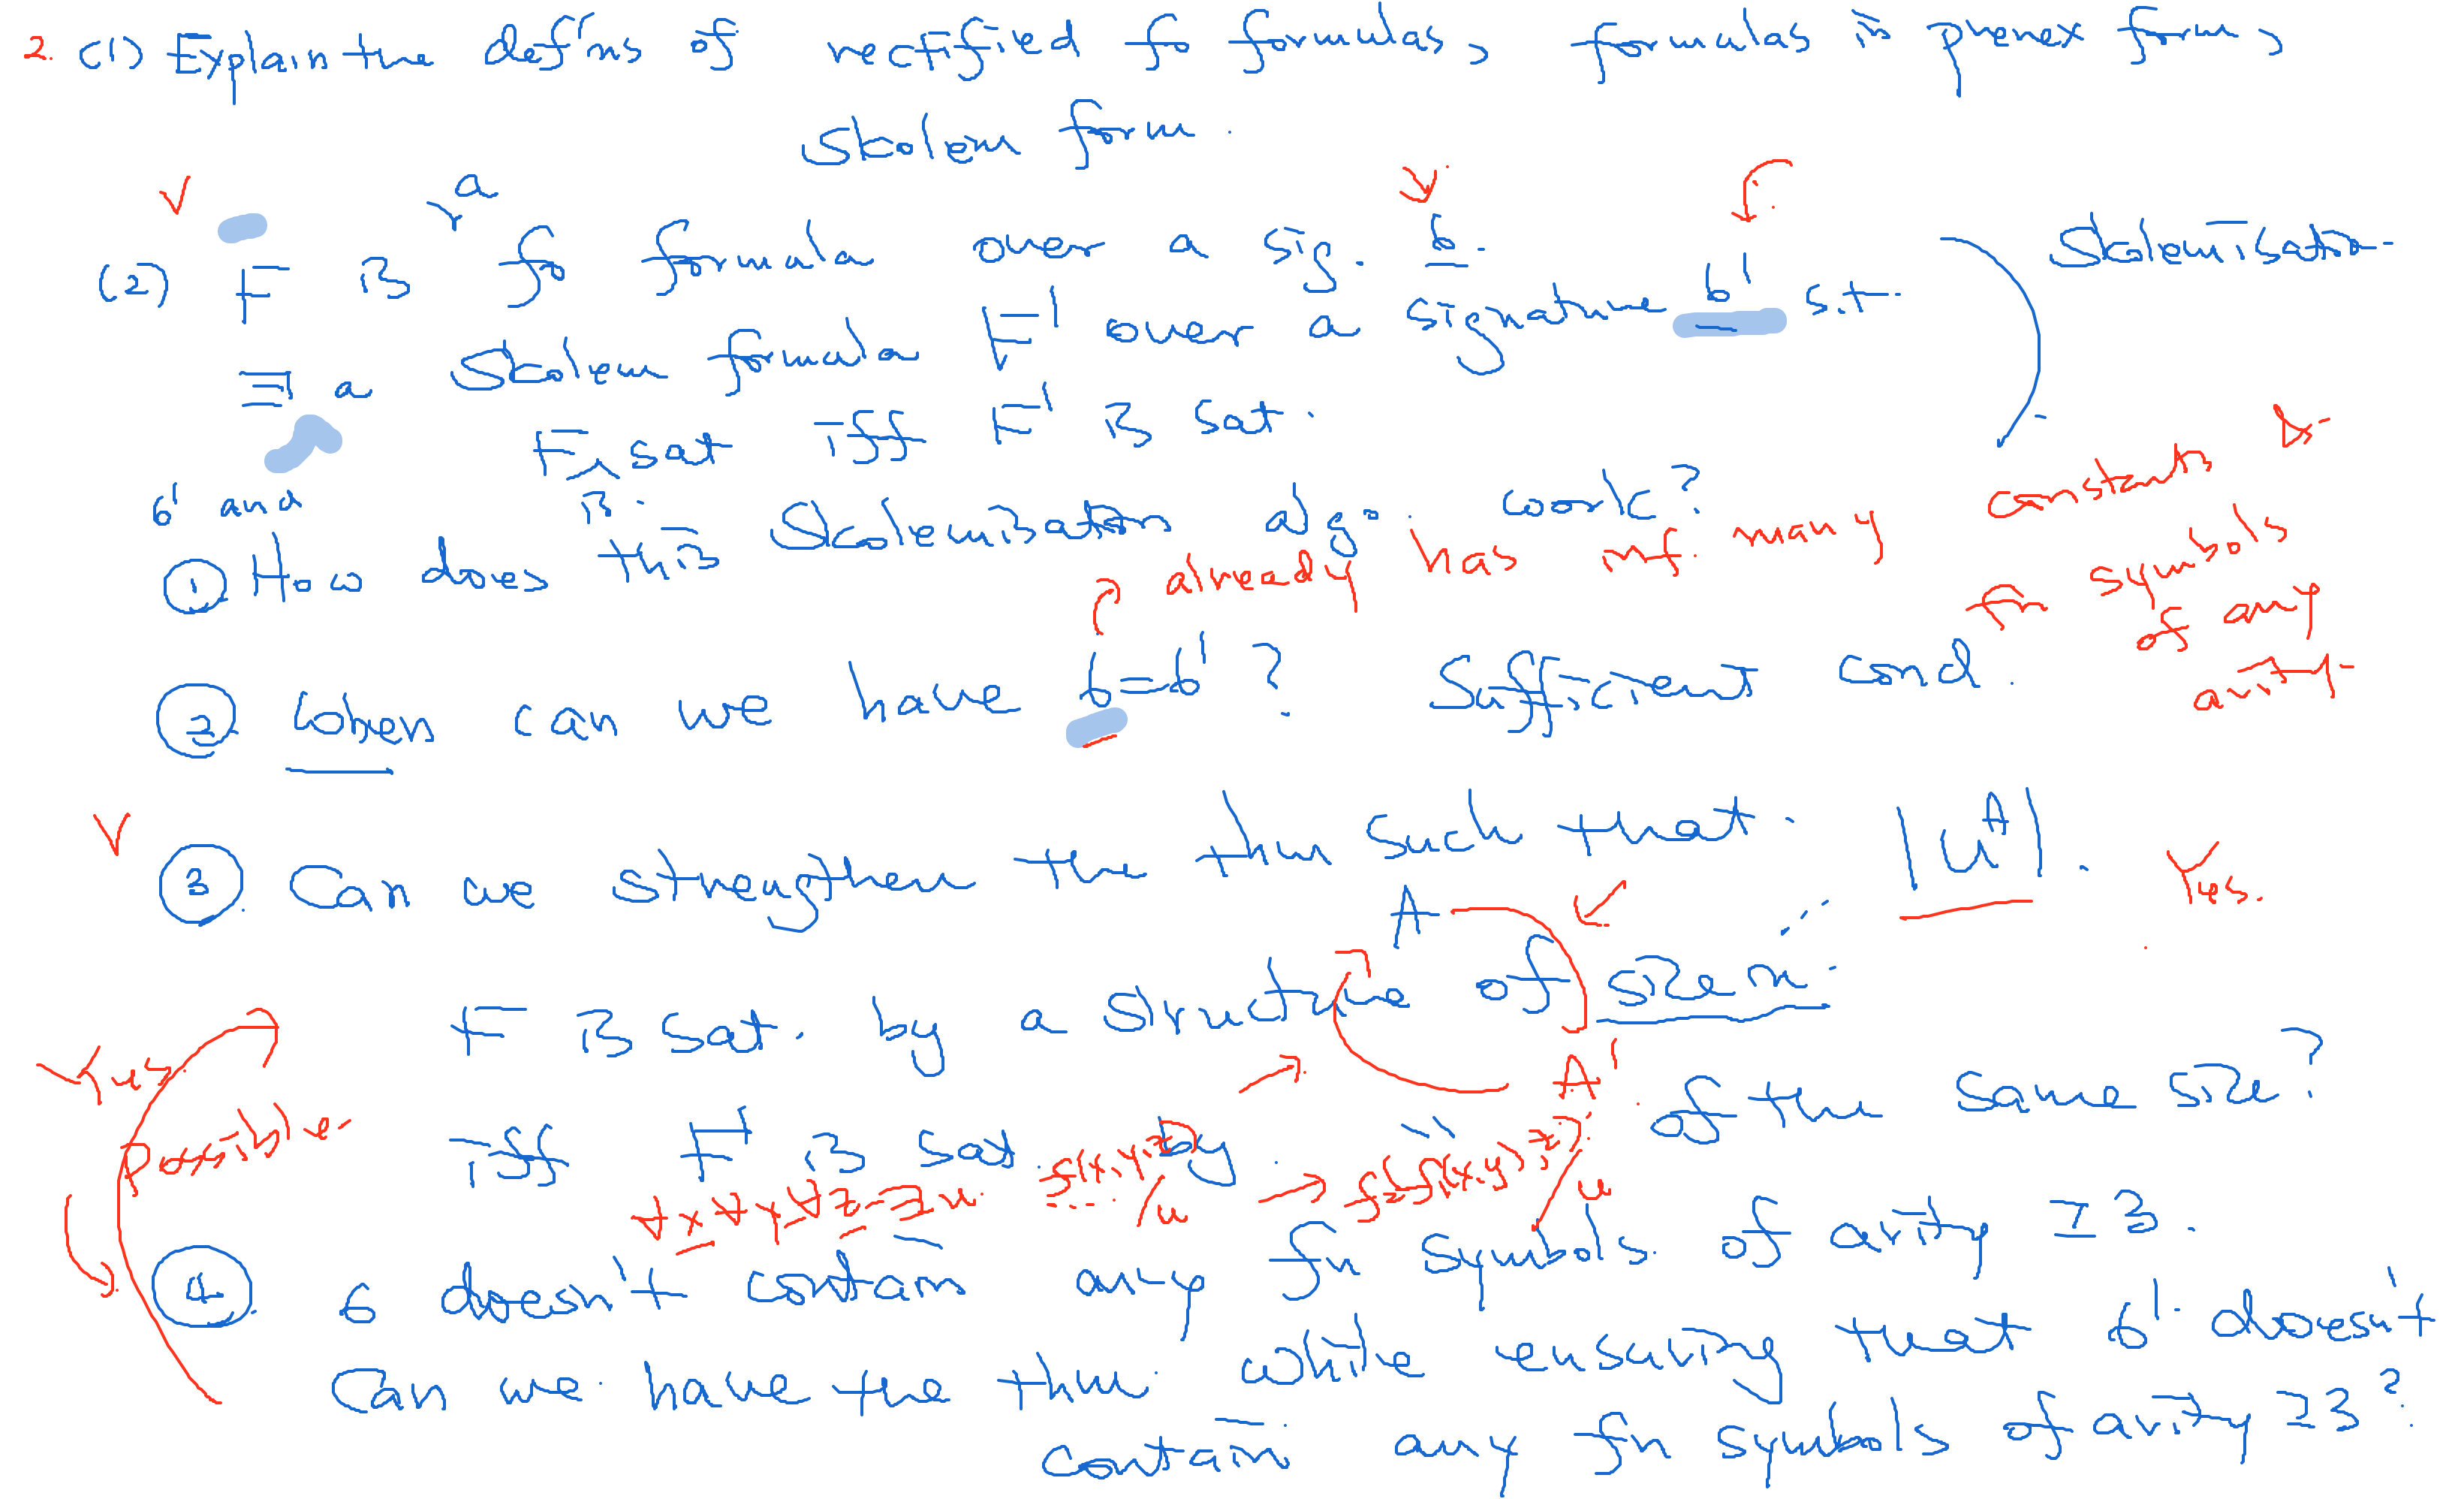 2. (1) Explain the defns of rectified fo formulas, formulas in prenex form,
Skolem form.
(2) F is a fo formula over a sig. σ.
Skolemisation
∃ a Skolem formula F' over a signature σ' s.t.
F is sat iff F' is sat.
σ' and
① How does this Skolemisation algo. work?
already has inf. many constants &
fn symbols of any arity
② When can we have σ=σ'? Sufficient cond.
③ Can we strengthen the thm such that |U^A|. Yes.
F is sat. by a structure A of size n.
iff F' is sat. by " A' of the same size?
Yes.
possible.
∀x ∀y ∀z ∃u.
④ σ doesn't contain any fn symbols of arity ≥3.
Can we have the thm. while ensuring that σ' doesn't
contain any fn symbols of arity ≥3?